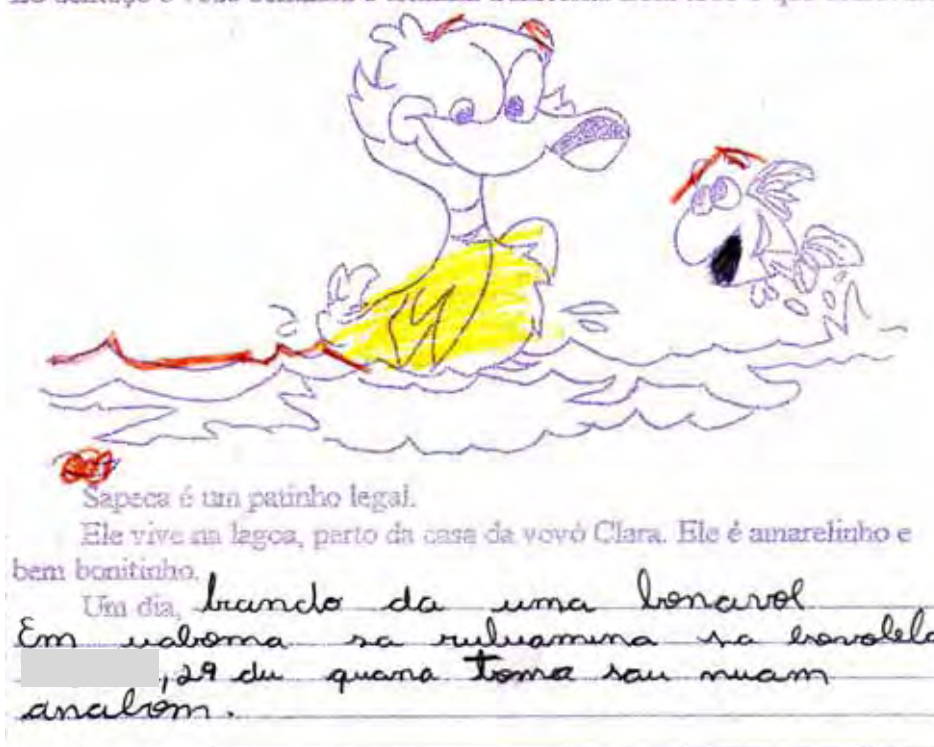 Sapeca é um patinho legal.
Ele vive na lagoa, perto da casa da vovó Clara. Ele é amarelinho e
bem bonitinho.
Um dia, brando da uma bonavol
Em uaboma sa
,29 du quana toma sau nuam
anabom.